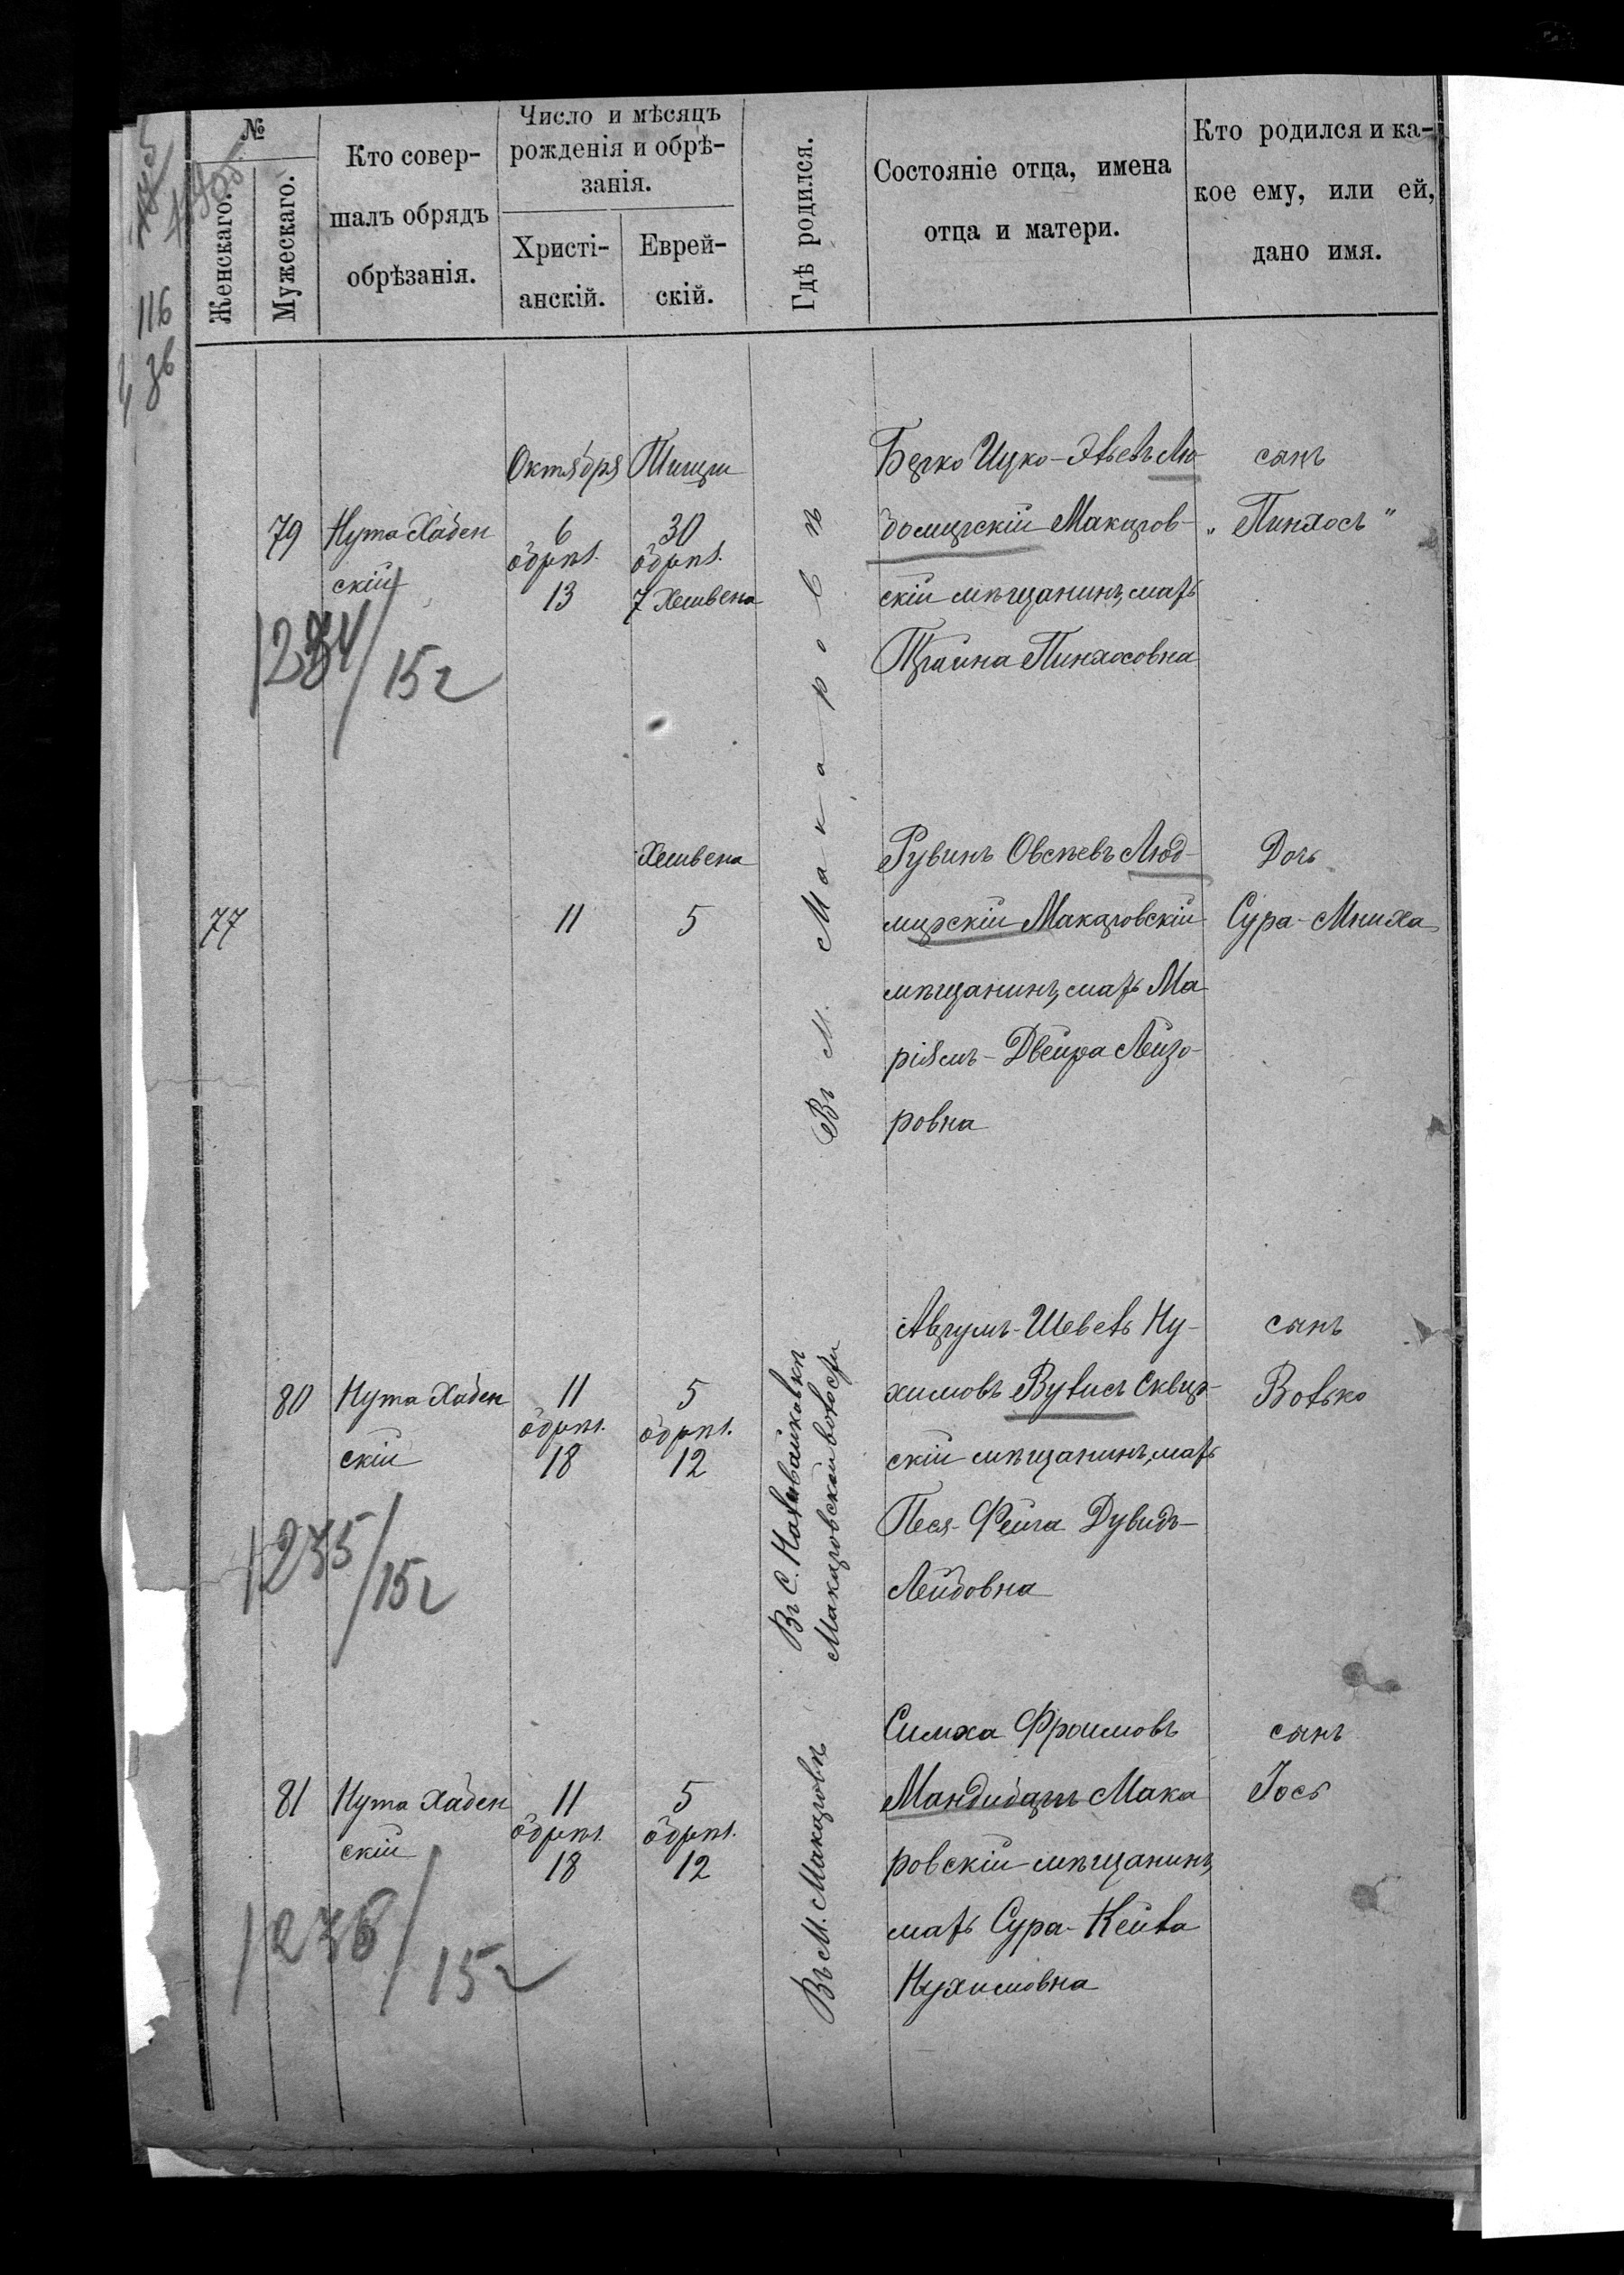 №
Женскаго.
Мужескаго.
Кто совер-
шалъ обрядъ
обрѣзанія.
Число и мѣсяцъ
рожденія и обрѣ-
занія.
Христі-
анскій.
Еврей-
скій.
Гдѣ родился.
Состояніе отца, имена
отца и матери.
Кто родился и ка-
кое ему, или ей,
дано имя.
116
36
79
Нута Хабен
скій
1234/15 г
Октября
6
обрѣз.
13
Тишри
30
обрѣз.
7 Хешвена
Въ м. Макаровѣ
Берко Ицко-Эльевъ Лю-
домирскій Макаров-
скій мѣщанинъ, мать
Фраина Пинхосовна
сынъ
„Пинхосъ"
77
11
Хешвена
5
Рувинъ Овсѣевъ Люд-
мирскій Макаровскій
мѣщанинъ, мать Ма
ріямъ-Двейра Лейзо-
ровна
Дочь
Сура-Мниха
80
Нута Хабен
скій
1235/15 г
11
обрѣз.
18
5
обрѣз.
12
Въ С. Наливайковкѣ
Макаровской волости
Аврумъ-Шевель Ну-
химовъ Вулисъ Сквир-
скій мѣщанинъ, мать
Песя-Фейга Дувидъ-
Лейбовна
сынъ
Волько
81
Нута Хабен
скій
1236/15 г
11
обрѣз.
18
5
обрѣз.
12
Въ М. Макаровѣ
Симха Фроимовъ
Мандибаръ Мака
ровскій мѣщанинъ,
мать Сура-Кейла
Нухимовна
сынъ
Іось